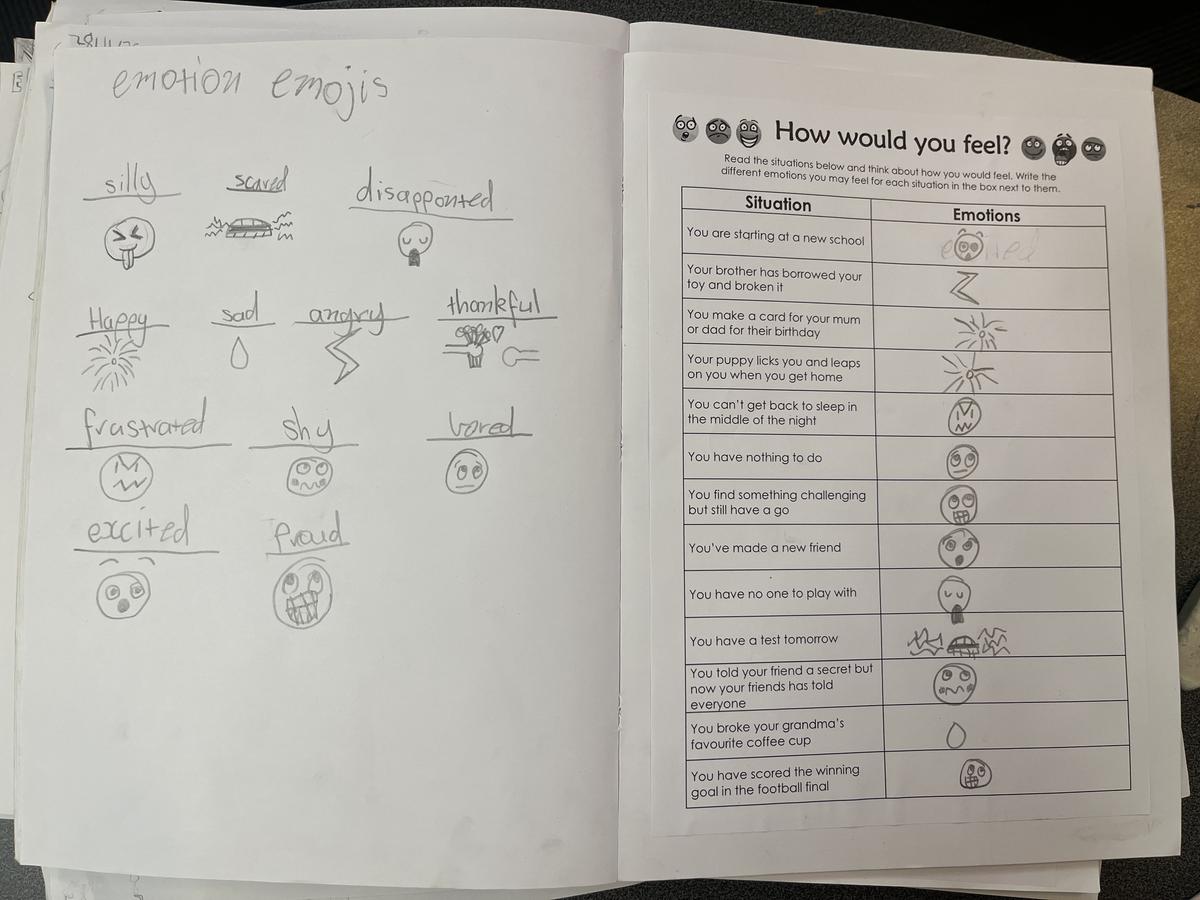 emotion emojis
silly scared disapponted
Happy sad angry thankful
frustrated shy bored
excited Proud
How would you feel?
Read the situations below and think about how you would feel. Write the
different emotions you may feel for each situation in the box next to them.
Situation Emotions
You are starting at a new school
Your brother has borrowed your
toy and broken it
You make a card for your mum
or dad for their birthday
Your puppy licks you and leaps
on you when you get home
You can't get back to sleep in
the middle of the night
You have nothing to do
You find something challenging
but still have a go
You've made a new friend
You have no one to play with
You have a test tomorrow
You told your friend a secret but
now your friends has told
everyone
You broke your grandma's
favourite coffee cup
You have scored the winning
goal in the football final